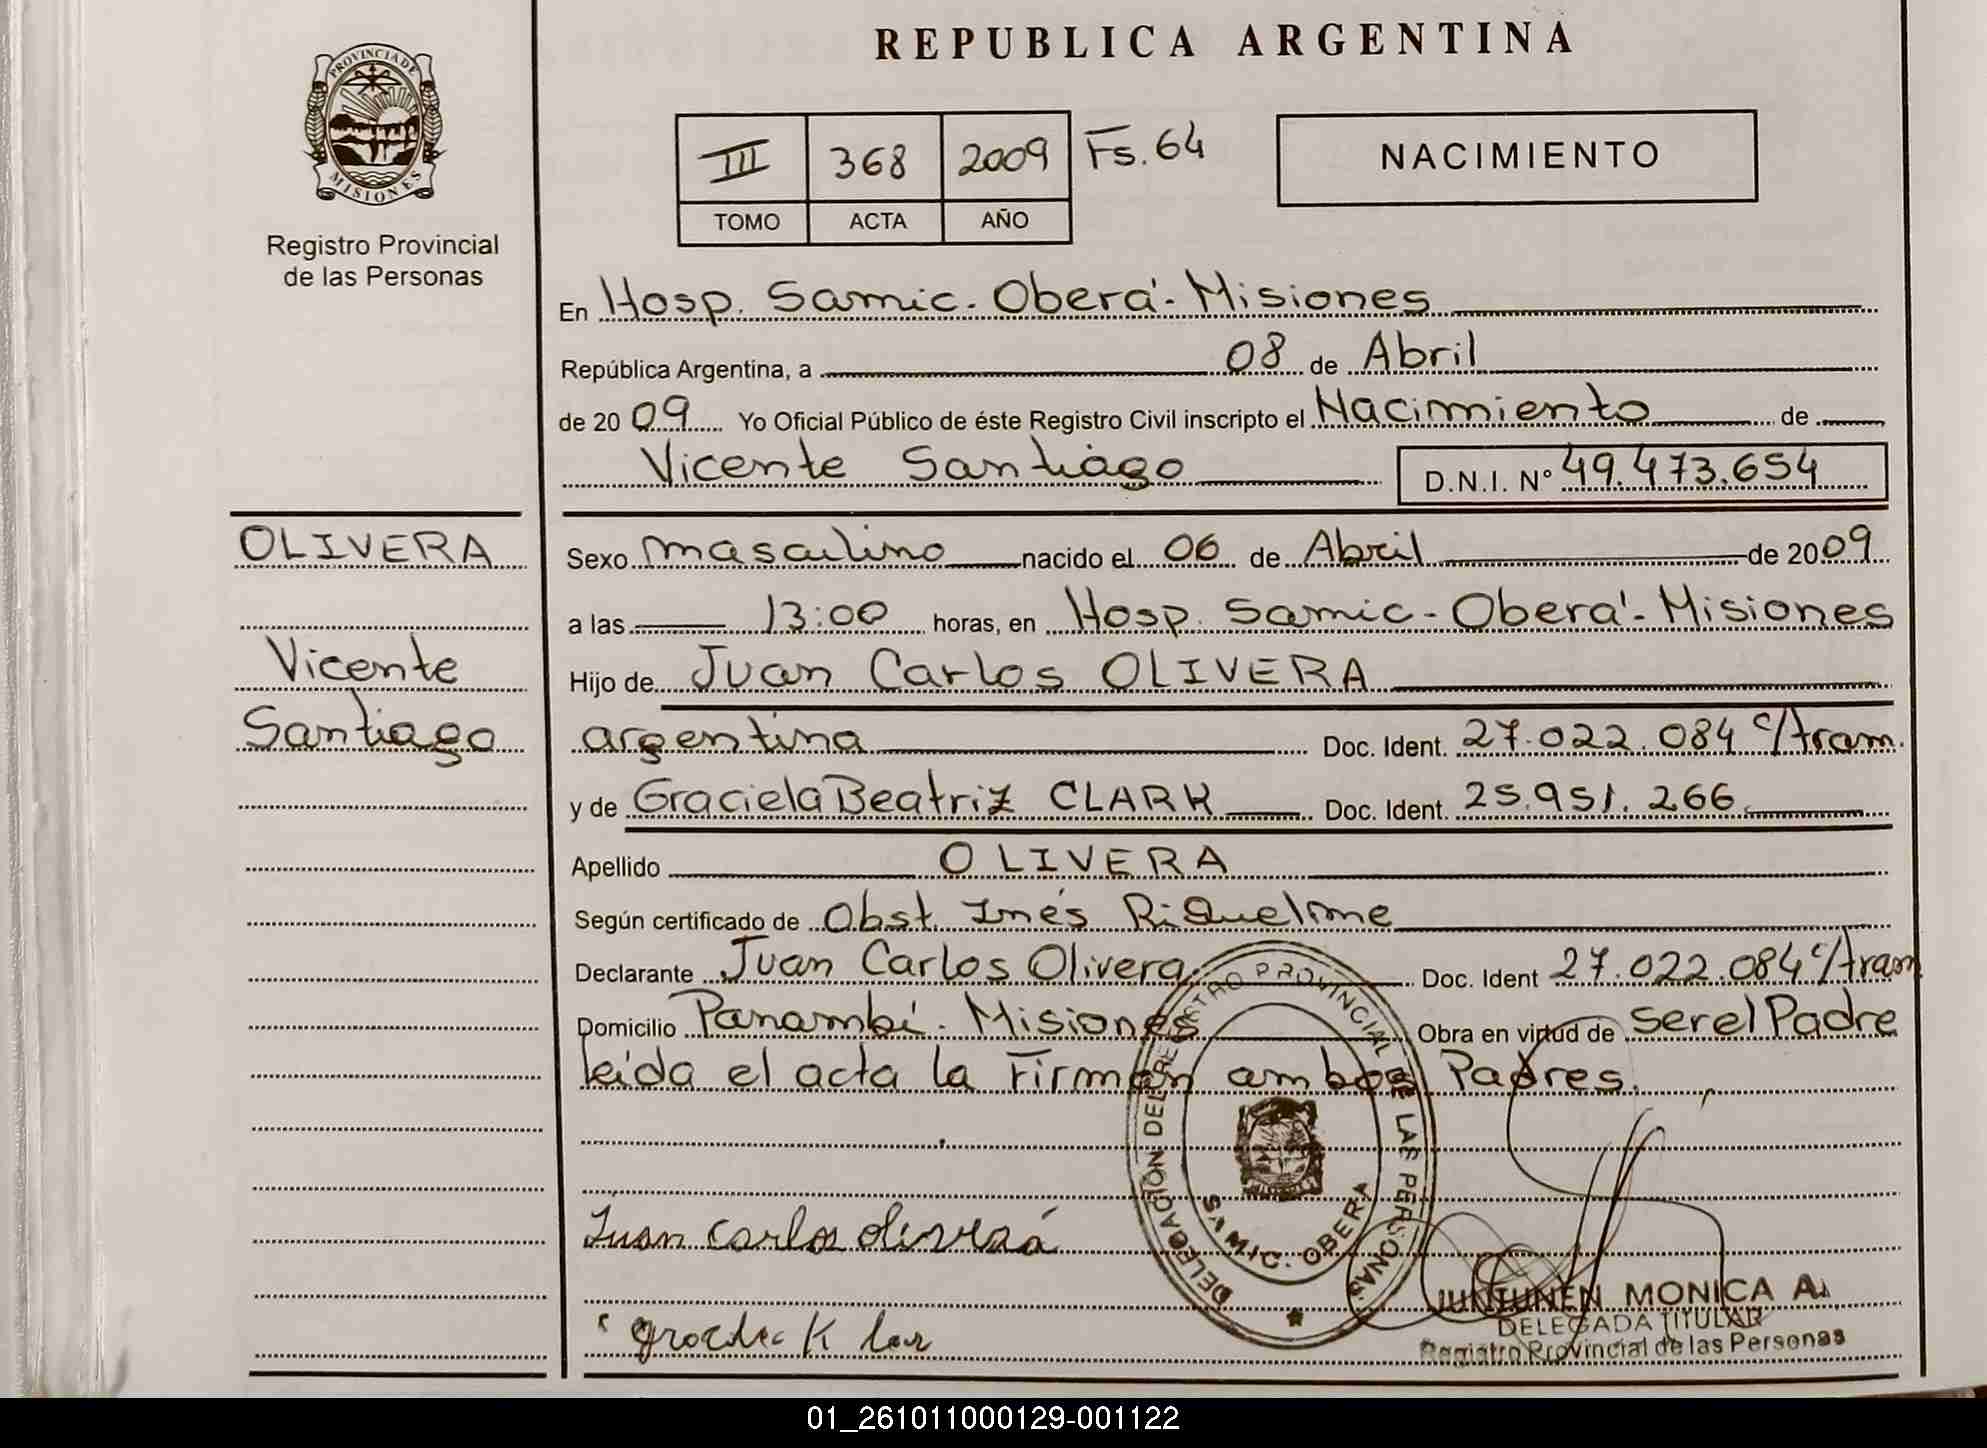 REPUBLICA ARGENTINA
PROVINCIA DE
MISIONES
Registro Provincial
de las Personas
III 368 2009 Fs. 64
TOMO ACTA AÑO
NACIMIENTO
En Hosp. Samic - Oberá - Misiones
República Argentina, a 08 de Abril
de 2009 Yo Oficial Público de éste Registro Civil inscripto el Nacimiento de
Vicente Santiago D.N.I. Nº 49.473.654
OLIVERA
Vicente
Santiago
Sexo masculino nacido el 06 de Abril de 2009
a las 13:00 horas, en Hosp. Samic - Oberá - Misiones
Hijo de Juan Carlos OLIVERA
argentina Doc. Ident. 27.022.084 c/tram.
y de Graciela Beatriz CLARK Doc. Ident. 25.951.266
Apellido OLIVERA
Según certificado de Obst. Inés Riquelme
Declarante Juan Carlos Olivera Doc. Ident 27.022.084 c/tram
Domicilio Panambí - Misiones Obra en virtud de ser el Padre
leída el acta la Firman ambos Padres.
DELEGACIÓN DEL REGISTRO PROVINCIAL DE LAS PERSONAS
SAMIC. OBERA
Juan Carlos Olivera
MONICA A.
DELEGADA TITULAR
Registro Provincial de las Personas
01_261011000129-001122